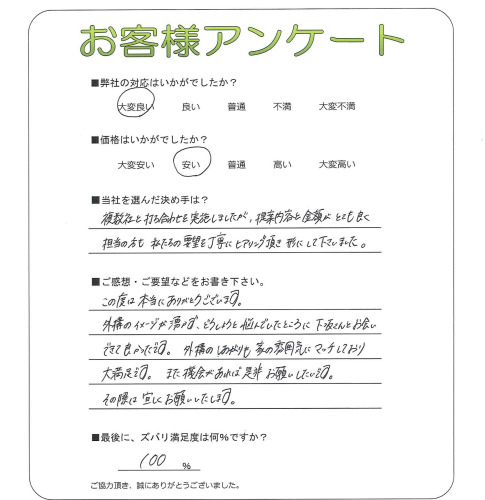 お客様アンケート
■弊社の対応はいかがでしたか？
大変良い 良い 普通 不満 大変不満
■価格はいかがでしたか？
大変安い 安い 普通 高い 大変高い
■当社を選んだ決め手は？
複数社と打ち合わせを実施しましたが、提案内容と金額がとても良く
担当の方も 私たちの要望を丁寧にヒアリング頂き 形にして下さいました。
■ご感想・ご要望などをお書き下さい。
この度は本当にありがとうございます。
外構のイメージが湧かず、どうしようと悩んでいたところに 下坂さんとお会い
できて良かったです。 外構のしあがりも 家の雰囲気にマッチしており
大満足です。 また機会があれば是非 お願いしたいです。
その際は宜しくお願いいたします。
■最後に、ズバリ満足度は何％ですか？
100 ％
ご協力頂き、誠にありがとうございました。